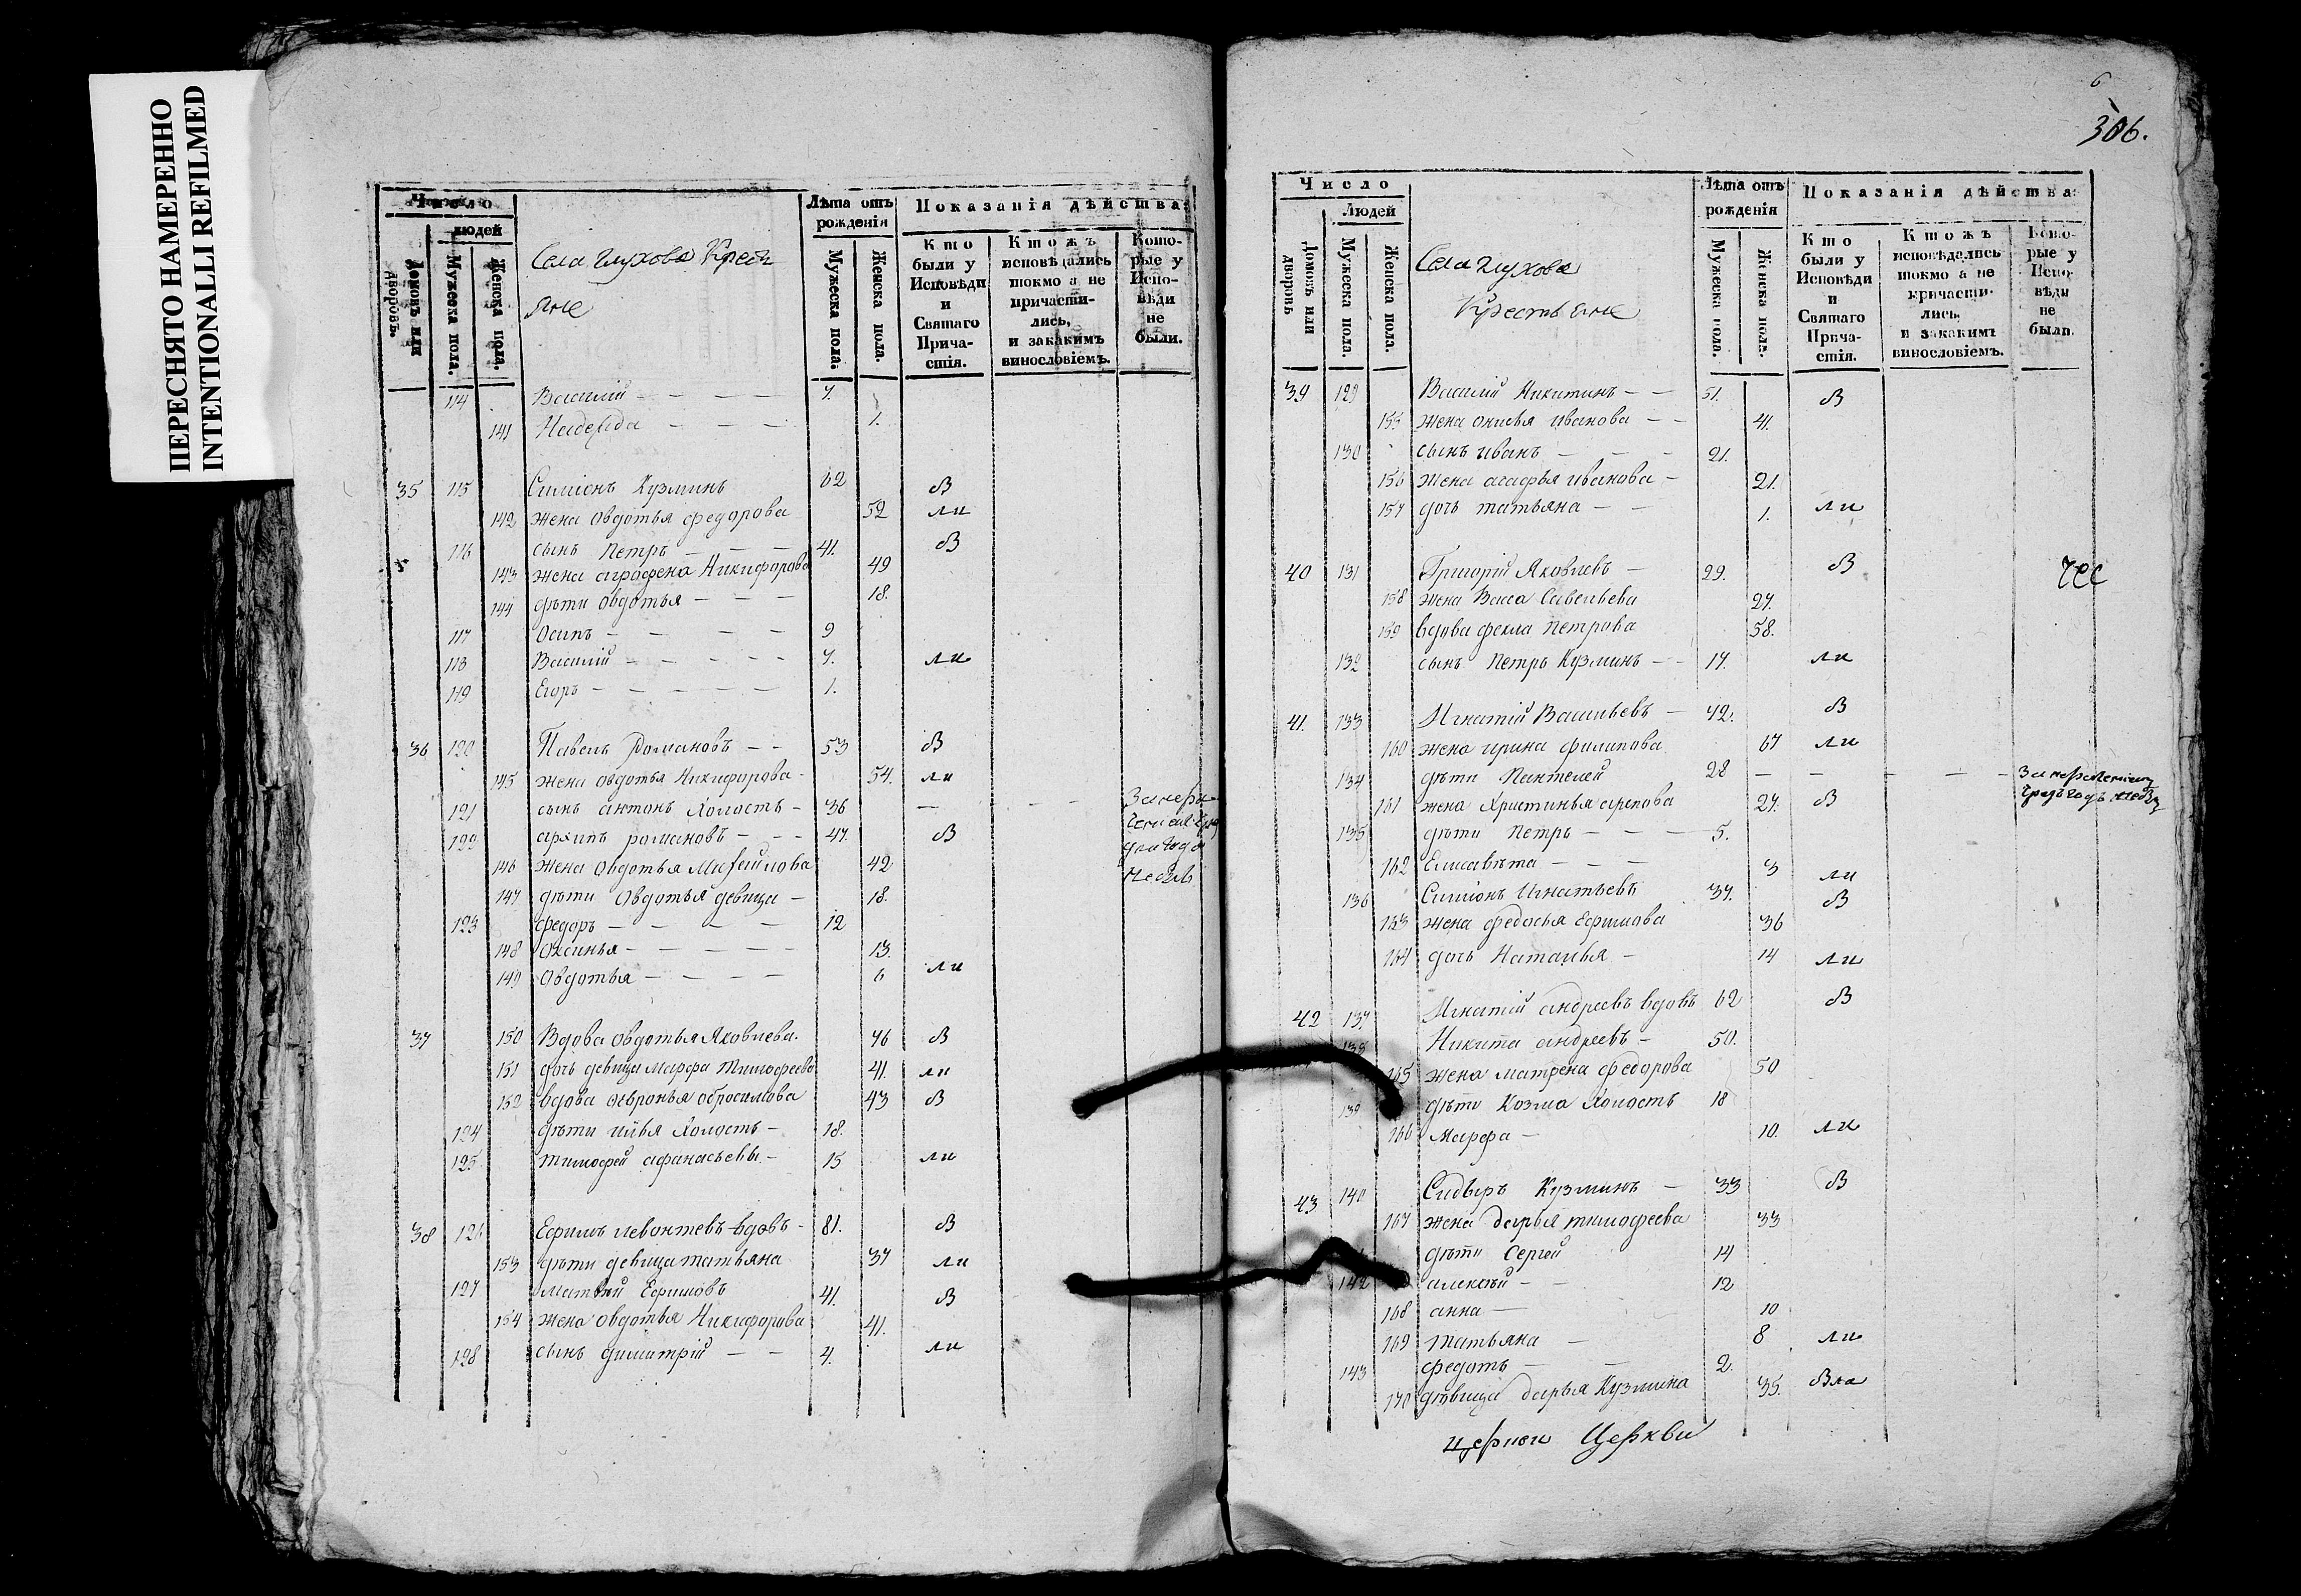 ПЕРЕСНЯТО НАМЕРЕННО
INTENTIONALLI REFILMED
Число
людей
Домовъ или дворовъ.
Мужеска пола.
Женска пола.
Села Глухова Кресть
яне
Лѣта отъ рожденія
Мужеска пола.
Женска пола.
Показанія дѣйства:
Кто были у Исповѣди и Святаго Причастія.
Ктожъ исповѣдались токмо а не причастились, и закакимъ винословіемъ.
Которые у Исповѣди не были.
114 Василий — — — — 7.
141 Надежда — — — 1.
35 115 Симионъ Кузминъ 62 В
142 жена Овдотья федорова 52 ли
116 сынъ Петръ — — — 41. В
143 жена аграфена Никифорова 49
144 дѣти Овдотья — — — 18.
117 Осипъ — — — — 9
118 Василий — — — — — 7. ли
119 Егоръ — — — — — 1.
36 120 Павелъ Романовъ — — 53 В
145 жена овдотья Никифорова — 54. ли
121 сынъ антонъ Холостъ — 36 — — —
122 архипъ романовъ — — — 47. В
146 жена Овдотья Михайлова 42
147 дѣти Овдотья девица — 18.
123 федоръ — — — — 12
148 Оксинья — — — — — 13.
149 Овдотья — — — — 6 ли
37 150 Вдова Овдотья Яковлева. 76 В
151 дочь девица Марфа Тимофеева 41. ли
152 вдова февронья обросимова 43 В
124 дѣти илья Холостъ — 18.
125 тимофей афанасьевы — 15 ли
38 126 Ефимъ левонтевъ вдовъ — 81. В
153 дѣти девица татьяна 37 ли
127 Матвѣй Ефимовъ 41. В
154 жена овдотья Никифорова 41.
128 сынъ димитрий — — 4. ли
6
306.
Число
Людей
Домовъ или дворовъ
Мужеска пола.
Женска пола.
Села глухова
Крестьяне
Лѣта отъ рожденія
Мужеска пола.
Женска пола.
Показанія дѣйства:
Кто были у Исповѣди и Святаго Причастія.
Ктожъ исповѣдались токмо а не причастились, и закакимъ винословіемъ.
Которые у Исповѣди не были.
39 129 Василий Никитинъ — — 51. В
155 жена онисья иванова — — 41.
130 сынъ иванъ — — — 21.
156 жена агафья иванова — 21.
157 дочь татьяна — — 1. ли
40 131 Григорий Яковлевъ — 29. В
158 жена Васса Савельева 27.
159 вдова фекла Петрова 58.
132 сынъ Петръ Кузминъ — — 17. ли
41. 133 Игнатий Васильевъ — 72. В
160 жена ирина филипова 67 ли
134 дѣти Пантелей 28 — — — — —
161 жена Христинья архипова 27. В
135 дѣти Петръ — — — 5.
162 Елисавѣта — — — 3 ли
136 Симионъ Игнатьевъ 37. В
163 жена федосья Ефимова 36
164 дочь Наталья — 14 ли
42 137 Игнатий андреевъ вдовъ 62 В
138 Никита андреевъ — 50.
165 жена матрена федорова 50
139 дѣти Козма Холостъ 18
166 Марфа — 10. ли
43 140 Сидоръ Кузминъ — 33 В
167 жена дарья тимофеева 33
дѣти Сергей 14
142 алексѣй — — 12
168 анна — 10
169 татьяна — 8 ли
143 федотъ — — 2.
170 дѣвица дарья Кузмина 35. Вла
Церкви